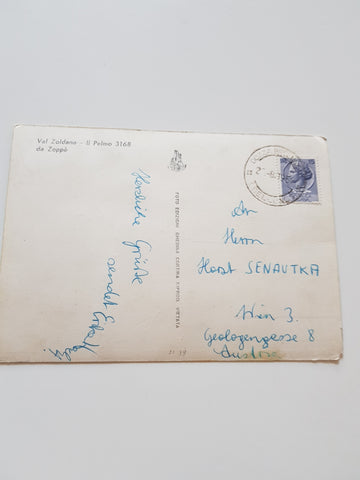 Val Zoldana - Il Pelmo 3168
da Zoppè
Herzliche Grüße
sendet
FOTO EDIZIONI GHEDINA CORTINA RIPROD. VIETATA
An
Herrn
Horst SENAUTKA
Wien 3.
Geologengasse 8
Austria